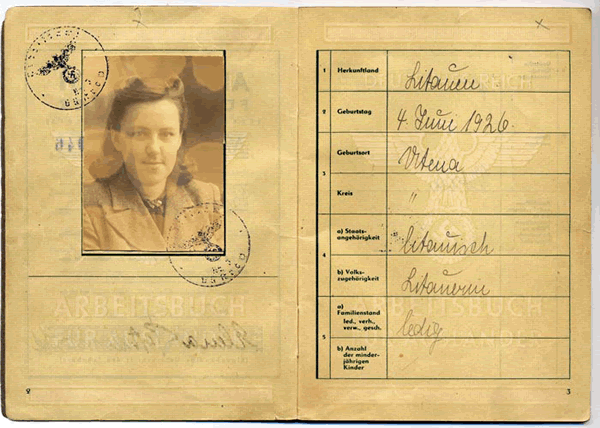 ARBEITSBUCH
2
1 Herkunftland Litauen
2 Geburtstag 4. Juni 1926.
Geburtsort Utena
3
Kreis "
a) Staats-
angehörigkeit litauisch
4
b) Volks-
zugehörigkeit Litauerin
a)
Familienstand
led., verh.,
verw., gesch. ledig
5
b) Anzahl
der minder-
jährigen
Kinder
3